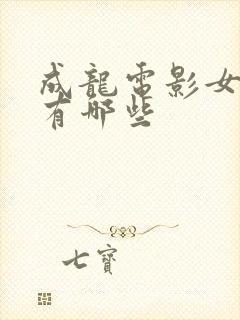 成龍電影女
有哪些
七寶